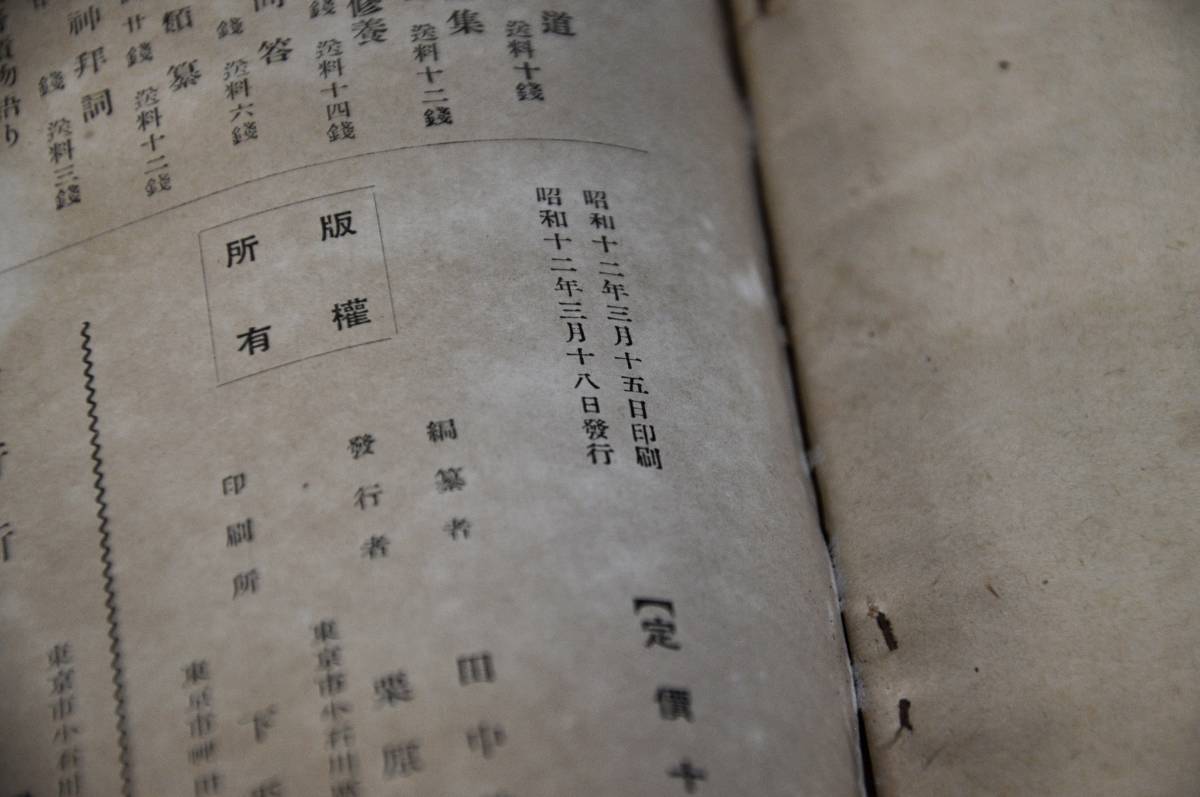 道
送料十錢
集
送料十二錢
修養
錢 送料十四錢
答
錢 送料六錢
類纂
廿錢 送料十二錢
神拜詞
錢 送料三錢
昭和十二年三月十五日印刷
昭和十二年三月十八日發行
版權
所有
【定價十
編纂者
田中
發行者
東京市小石川
栗原
印刷所
東京市神田
下
東京市小石川